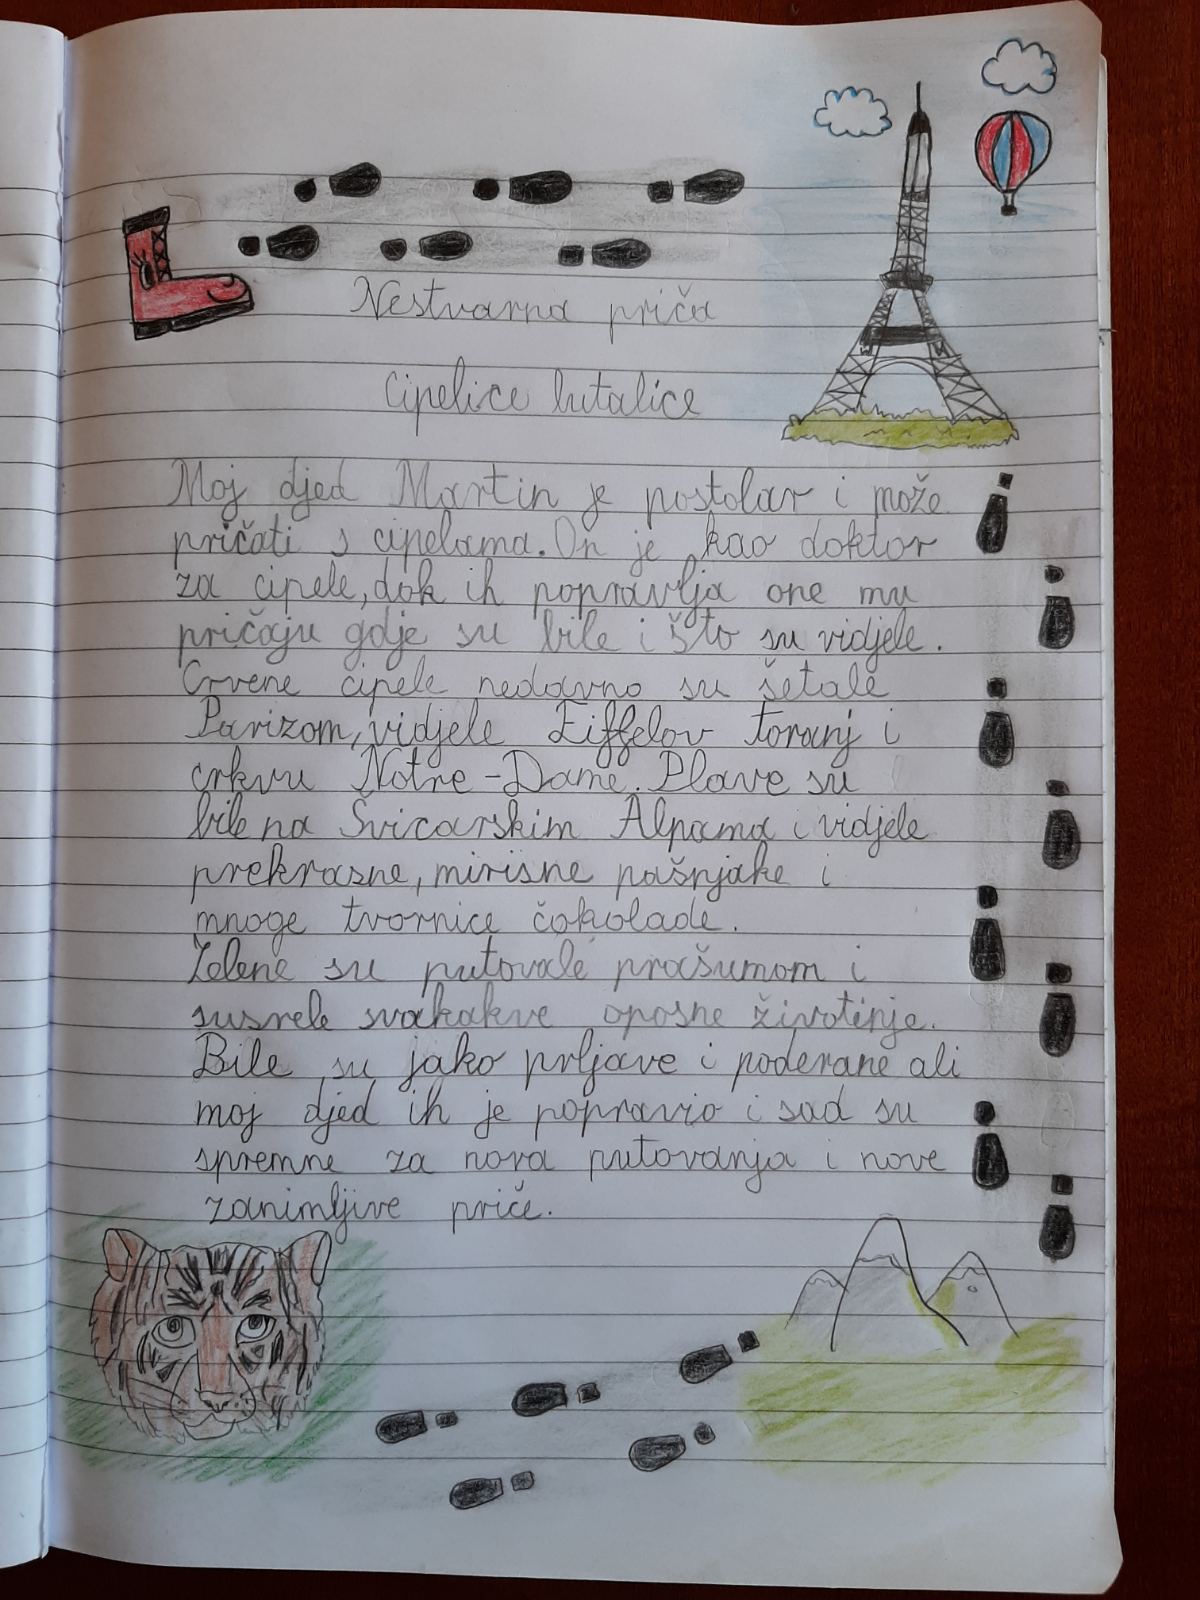 Nestvarna priča
Cipelice lutalice
Moj djed Martin je postolar i može
pričati s cipelama. On je kao doktor
za cipele, dok ih popravlja one mu
pričaju gdje su bile i što su vidjele.
Crvene cipele nedavno su šetale
Parizom, vidjele Eiffelov toranj i
crkvu Notre-Dame. Plave su
bile na Švicarskim Alpama i vidjele
prekrasne, mirisne pašnjake i
mnoge tvornice čokolade.
Zelene su putovale prašumom i
susrele svakakve opasne životinje.
Bile su jako prljave i poderane ali
moj djed ih je popravio i sad su
spremne za nova putovanja i nove
zanimljive priče.